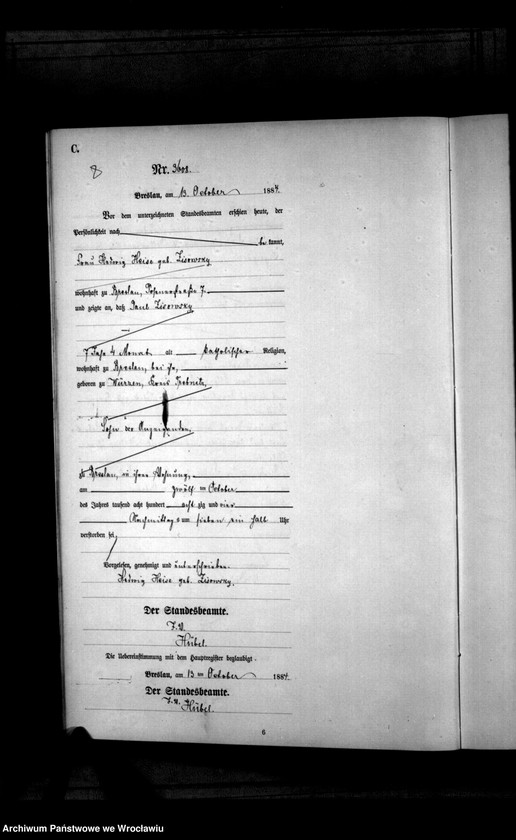 C.
8
Nr. 3601.
Breslau, am 13. October 1884.
Vor dem unterzeichneten Standesbeamten erschien heute, der
Persönlichkeit nach
be kannt,
Frau Hedwig Heise geb. Zisowsky
wohnhaft zu Breslau, Posenerstraße 7.
und zeigte an, daß Paul Zisowsky
7 Jahr 4 Monat alt katholischer Religion,
wohnhaft zu Breslau, bei ihr,
geboren zu Würzen, Kreis
Sohn der Anzeigenden,
zu Breslau, in ihrer Wohnung,
am zwölften October
des Jahres tausend acht hundert acht zig und vier
Nachmittags um sieben ein halb Uhr
verstorben sei.
Vorgelesen, genehmigt und unterschrieben.
Hedwig Heise geb. Zisowsky.
Der Standesbeamte.
I.V.
Hübel.
Die Uebereinstimmung mit dem Hauptregister beglaubigt.
Breslau, am 13ten October 1884.
Der Standesbeamte.
I.V. Hübel.
6
Archiwum Państwowe we Wrocławiu